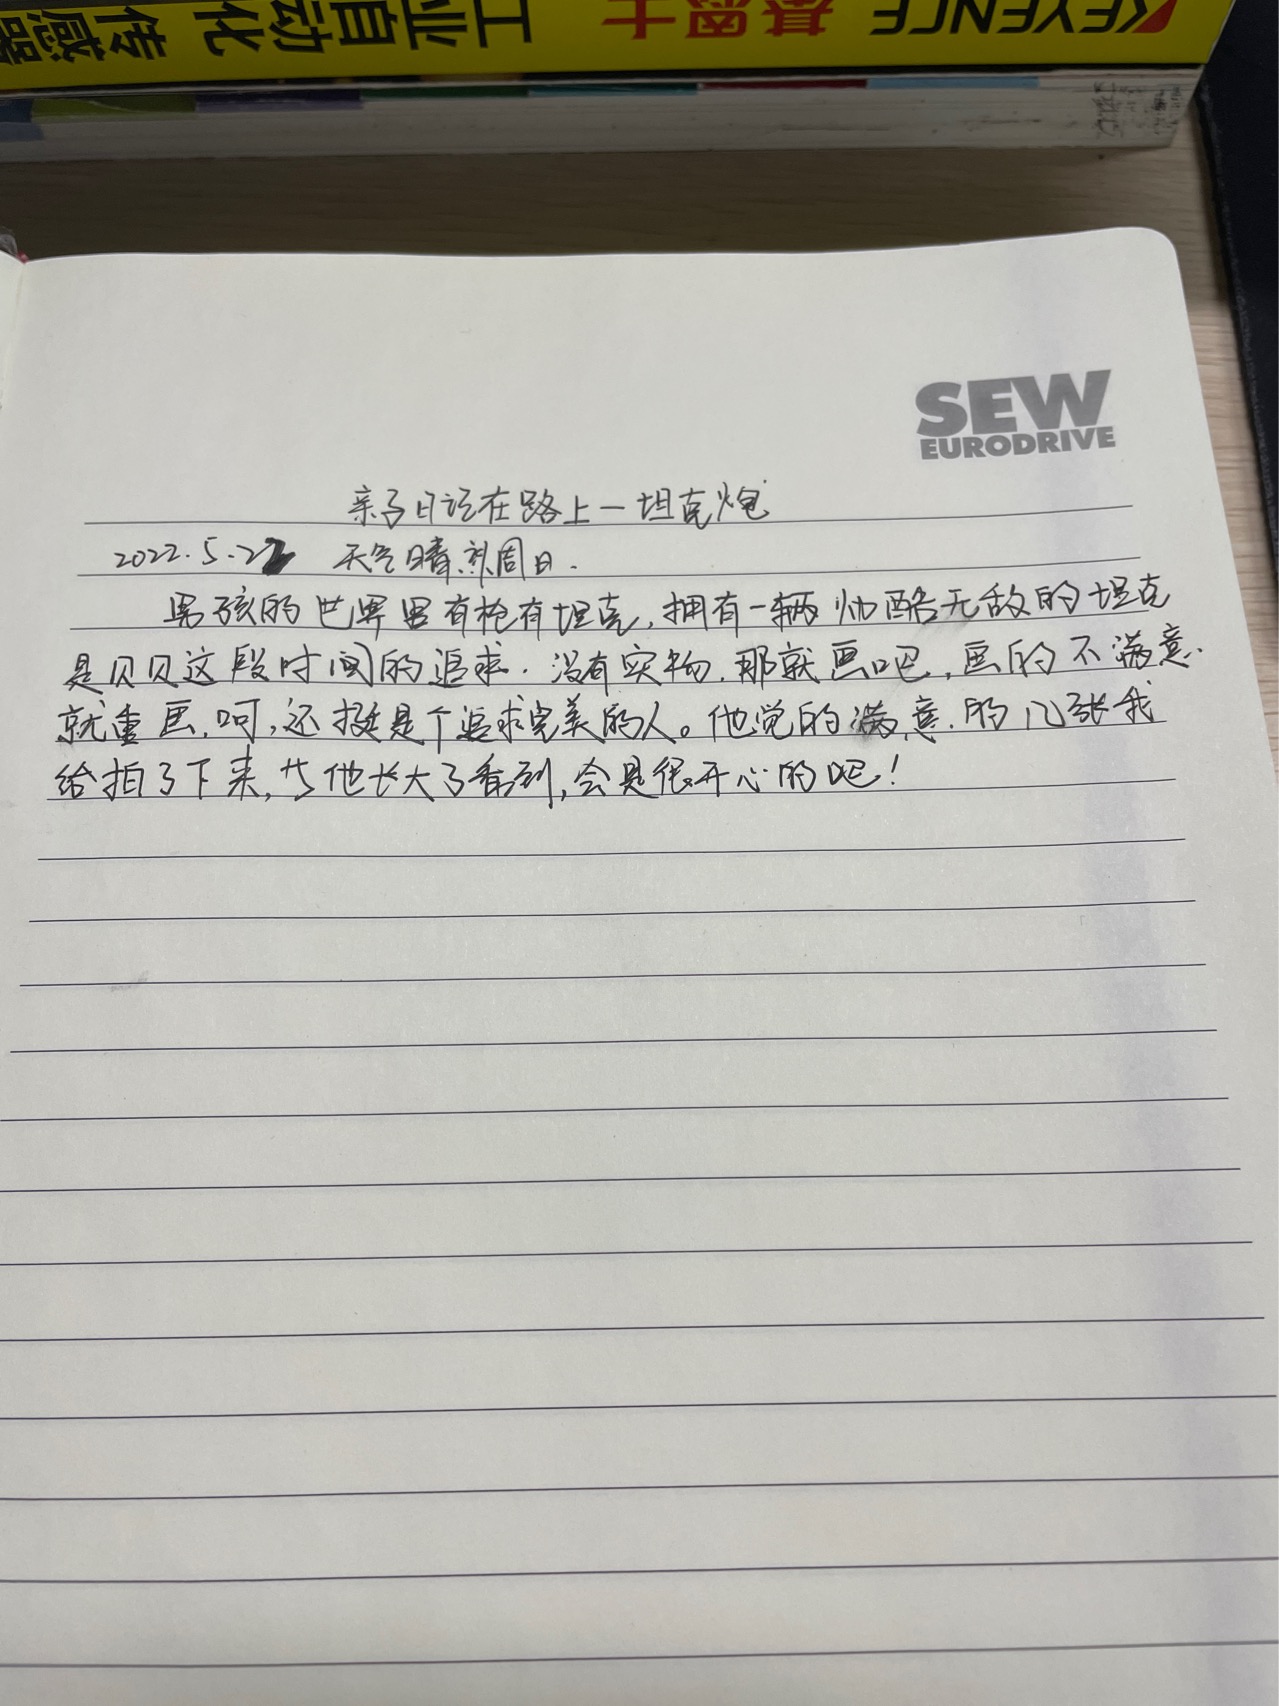 KEYENCE 基恩士 工业自动化 传感器
SEW
EURODRIVE
亲子日记在路上一坦克炮
2022.5.22 天气晴 周日.
男孩的世界里有枪有坦克,拥有一辆帅酷无敌的坦克
是贝贝这段时间的追求.没有实物,那就画吧,画的不满意
就重画,呵,还挺是个追求完美的人。他觉的满意的几张我
给拍了下来,等他长大了看到,会是很开心的吧!